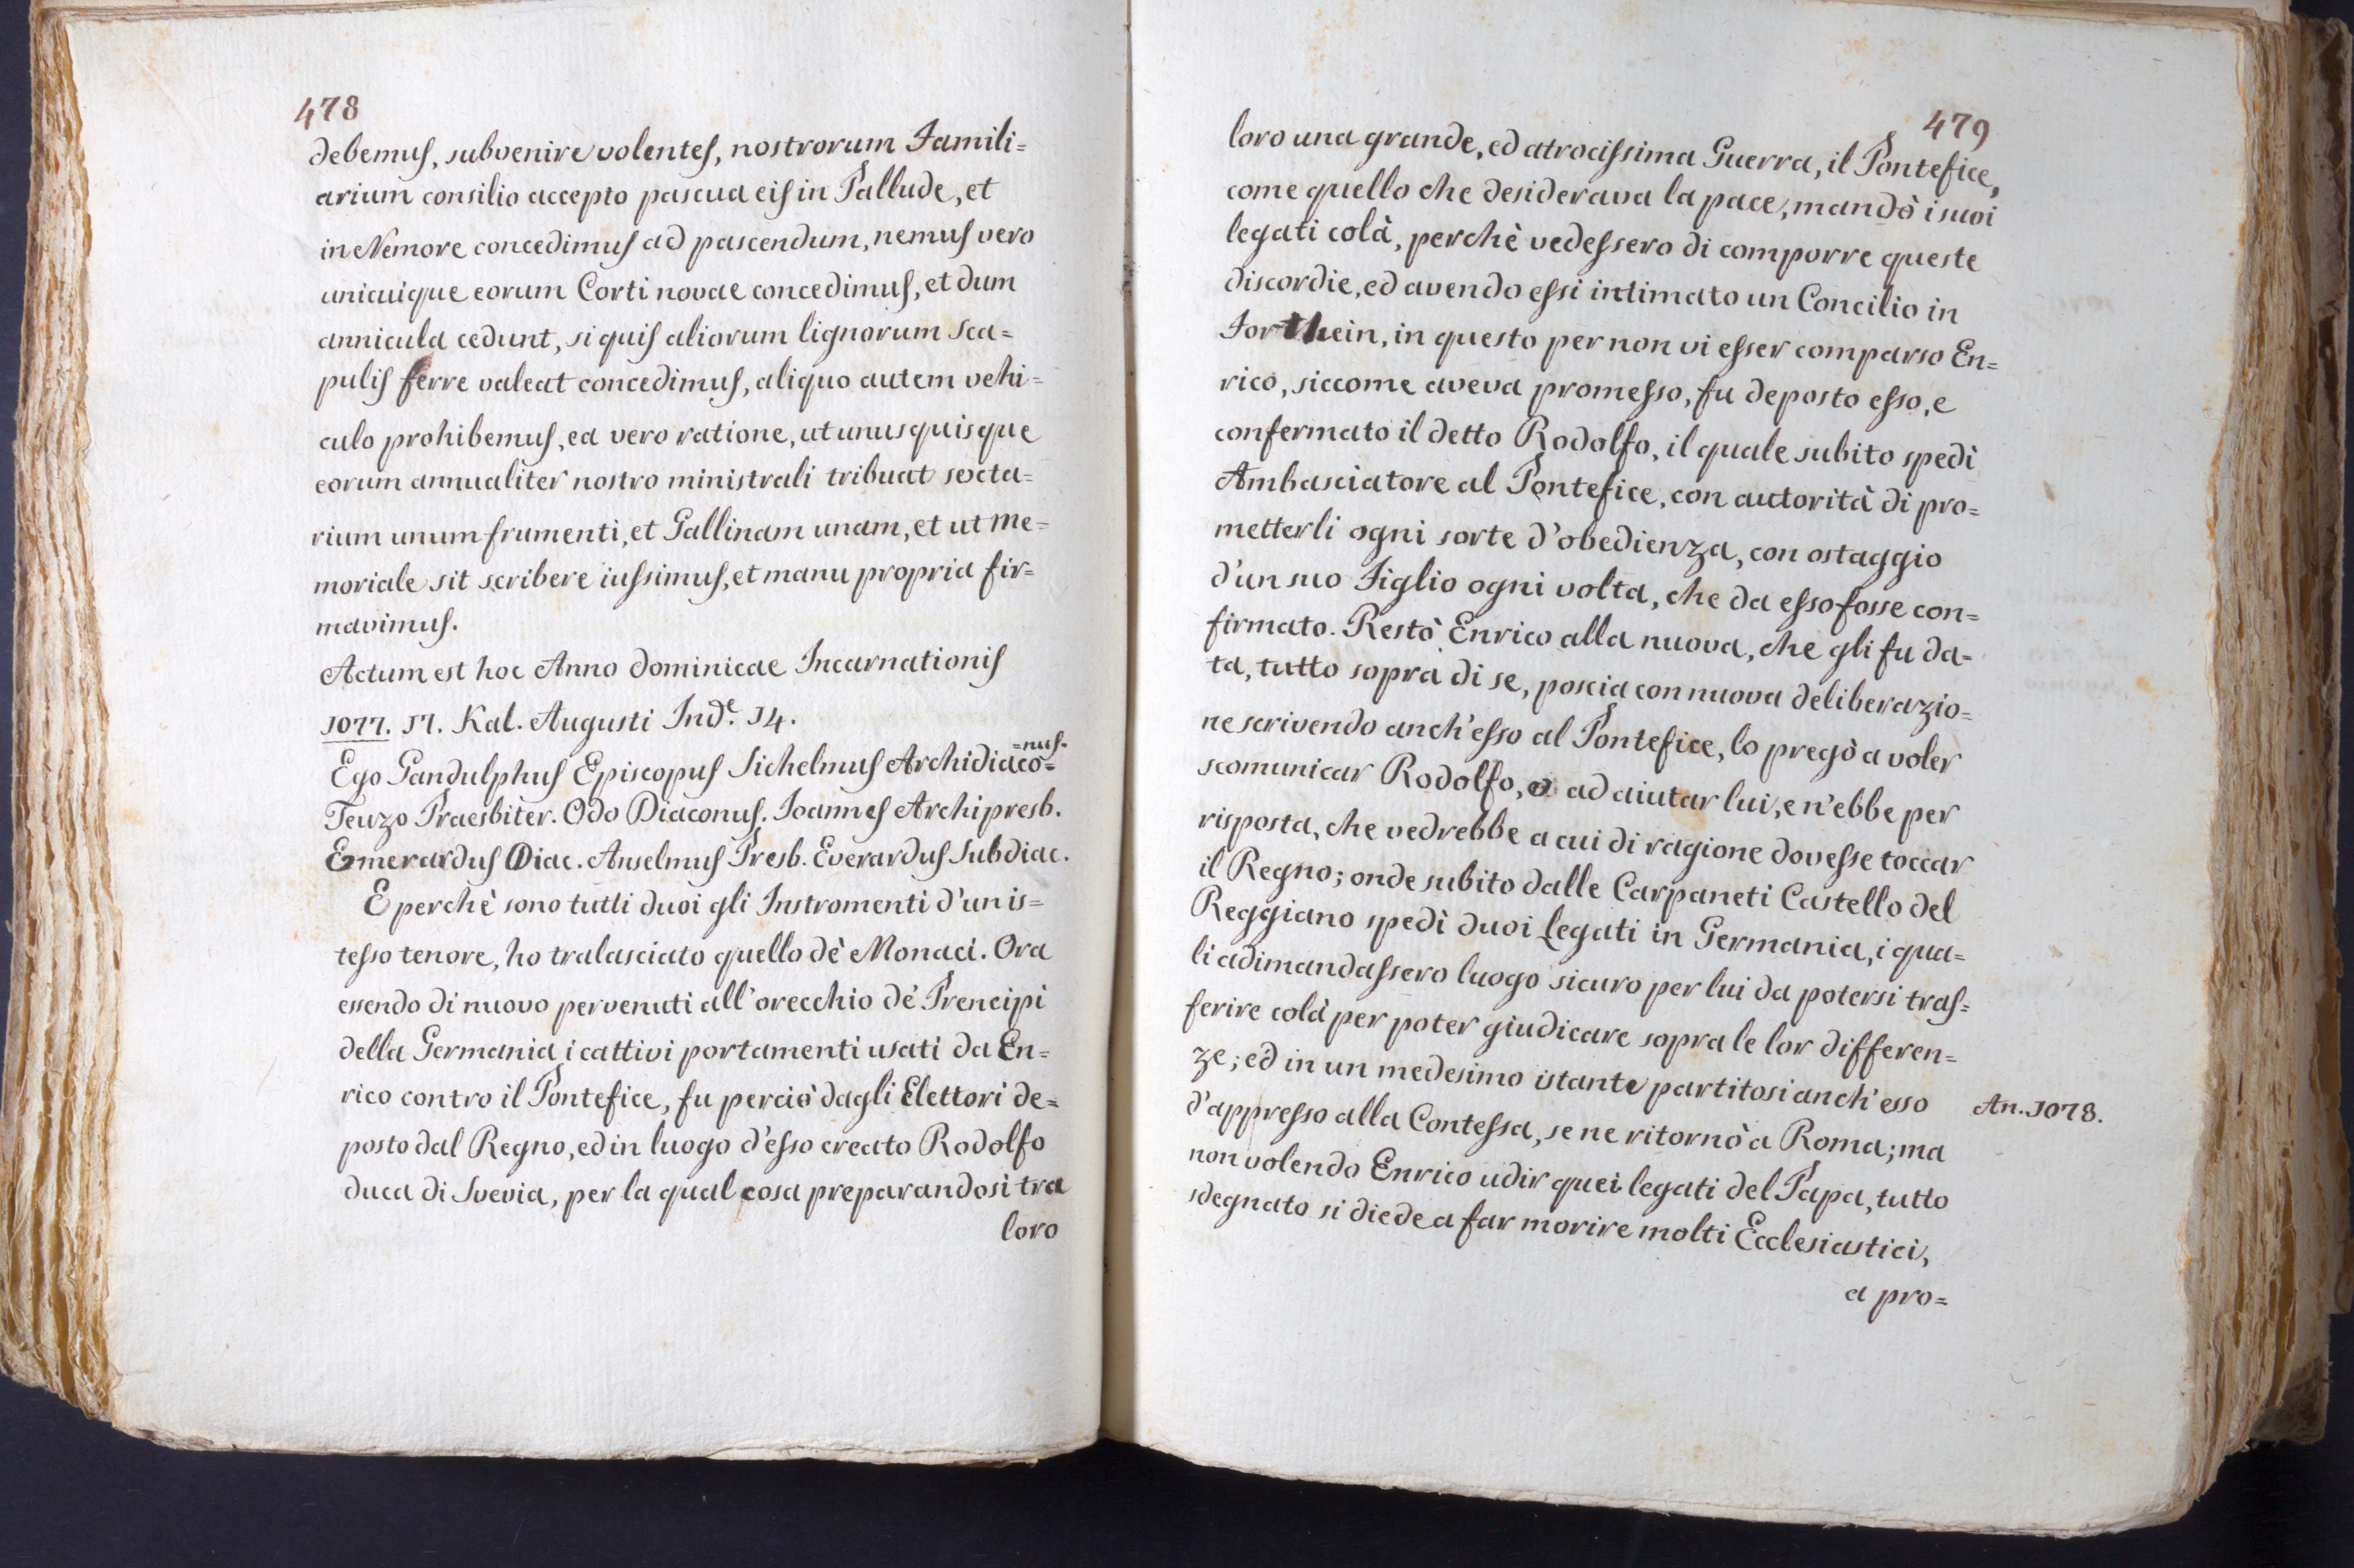 478
debemus, subvenire volentes, nostrorum Famili=
arium consilio accepto pascua eis in Pallude, et
in Nemore concedimus ad pascendum, nemus vero
unicuique eorum Corti novae concedimus, et dum
annicula cedunt, si quis aliorum lignorum sca=
pulis ferre valeat concedimus, aliquo autem vehi=
culo prohibemus, ea vero ratione, ut unusquisque
eorum annualiter nostro ministrali tribuat sexta=
rium unum frumenti, et Gallinam unam, et ut me=
moriale sit scribere iussimus, et manu propria fir=
mavimus.
Actum est hoc Anno dominicae Incarnationis
1077. 17. Kal. Augusti Ind.e 14.
Ego Gandulphus Episcopus Sichelmus Archidiaco= =nus.
Teuzo Praesbiter. Odo Diaconus. Ioannes Archipresb.
Emerardus Diac. Anselmus Presb. Everardus Subdiac.
E perchè sono tutti duoi gli Instromenti d'un is=
tesso tenore, ho tralasciato quello dè Monaci. Ora
essendo di nuovo pervenuti all'orecchio dé Prencipi
della Germania i cattivi portamenti usati da En=
rico contro il Pontefice, fu perciò dagli Elettori de=
posto dal Regno, ed in luogo d'esso creato Rodolfo
duca di Svevia, per la qual cosa preparandosi tra
loro
479
loro una grande, ed atrocissima Guerra, il Pontefice,
come quello che desiderava la pace, mandò i suoi
legati colà, perchè vedessero di comporre queste
discordie, ed avendo essi intimato un Concilio in
Forthein, in questo per non vi esser comparso En=
rico, siccome aveva promesso, fu deposto esso, e
confermato il detto Rodolfo, il quale subito spedì
Ambasciatore al Pontefice, con autorità di pro=
metterli ogni sorte d'obedienza, con ostaggio
d'un suo Figlio ogni volta, che da esso fosse con=
firmato. Restò Enrico alla nuova, che gli fu da=
ta, tutto sopra di se, poscia con nuova deliberazio=
ne scrivendo anch'esso al Pontefice, lo pregò a voler
scomunicar Rodolfo, e ad aiutar lui, e n'ebbe per
risposta, che vedrebbe a cui di ragione dovesse toccar
il Regno; onde subito dalle Carpaneti Castello del
Reggiano spedì duoi Legati in Germania, i qua=
li adimandassero luogo sicuro per lui da potersi tras=
ferire colà per poter giudicare sopra le lor differen=
ze; ed in un medesimo istante partitosi anch'esso
An. 1078.
d'appresso alla Contessa, se ne ritornò a Roma; ma
non volendo Enrico udir quei legati del Papa, tutto
sdegnato si diede a far morire molti Ecclesiastici,
a pro=